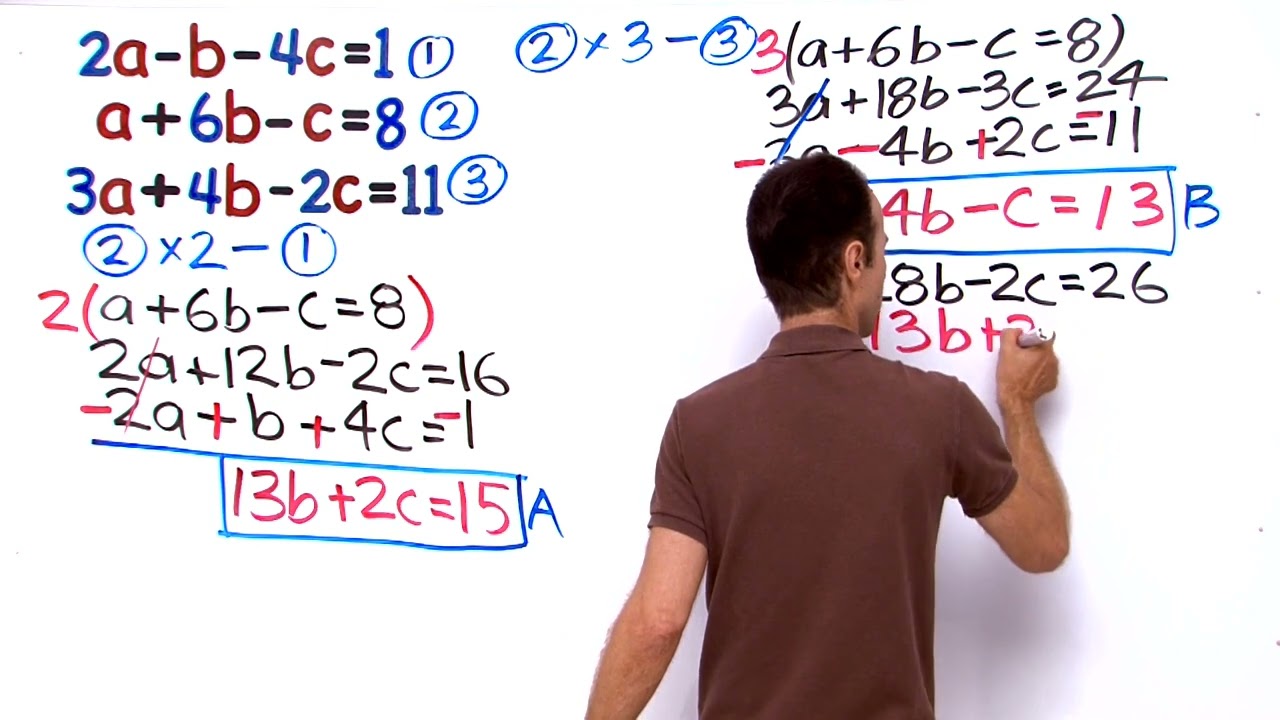 2a-b-4c=1 ①
a+6b-c=8 ②
3a+4b-2c=11 ③
② ×2 - ①
2(a+6b-c=8)
2a+12b-2c=16
-2a+b+4c=-1
13b+2c=15 A
② ×3 - ③ 3(a+6b-c=8)
3a+18b-3c=24
-3a-4b+2c=-11
4b-c=13 B
28b-2c=26
13b+2